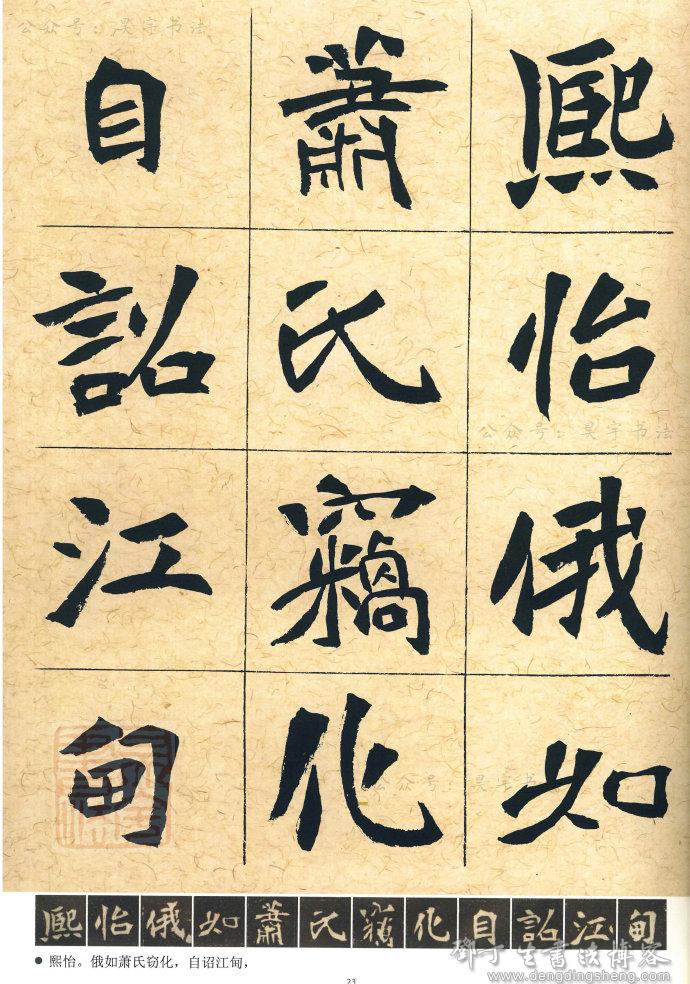 公众号：昊宇书法
熙怡俄如
蕭氏竊化
自詔江甸
公众号：昊宇书法
公众号：昊宇书
熙怡俄如蕭氏竊化自詔江甸
● 熙怡。俄如萧氏窃化，自诏江甸，
鄧丁生書法博客
www.dengdingsheng.com
23